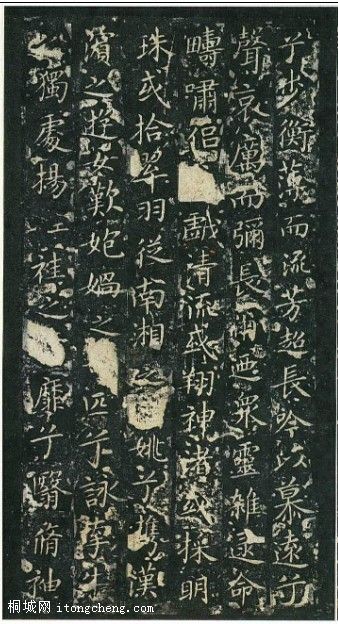 兮步衡薄而流芳超長吟以慕遠兮
聲哀厲而彌長爾迺衆靈雜遝命
疇嘯侶戲清流或翔神渚或採明
珠或拾翠羽從南湘之姚兮攜漢
濱之遊女歎匏媧之匹兮詠牽牛
之獨處揚袿之靡兮翳脩袖
桐城网 itongcheng.com